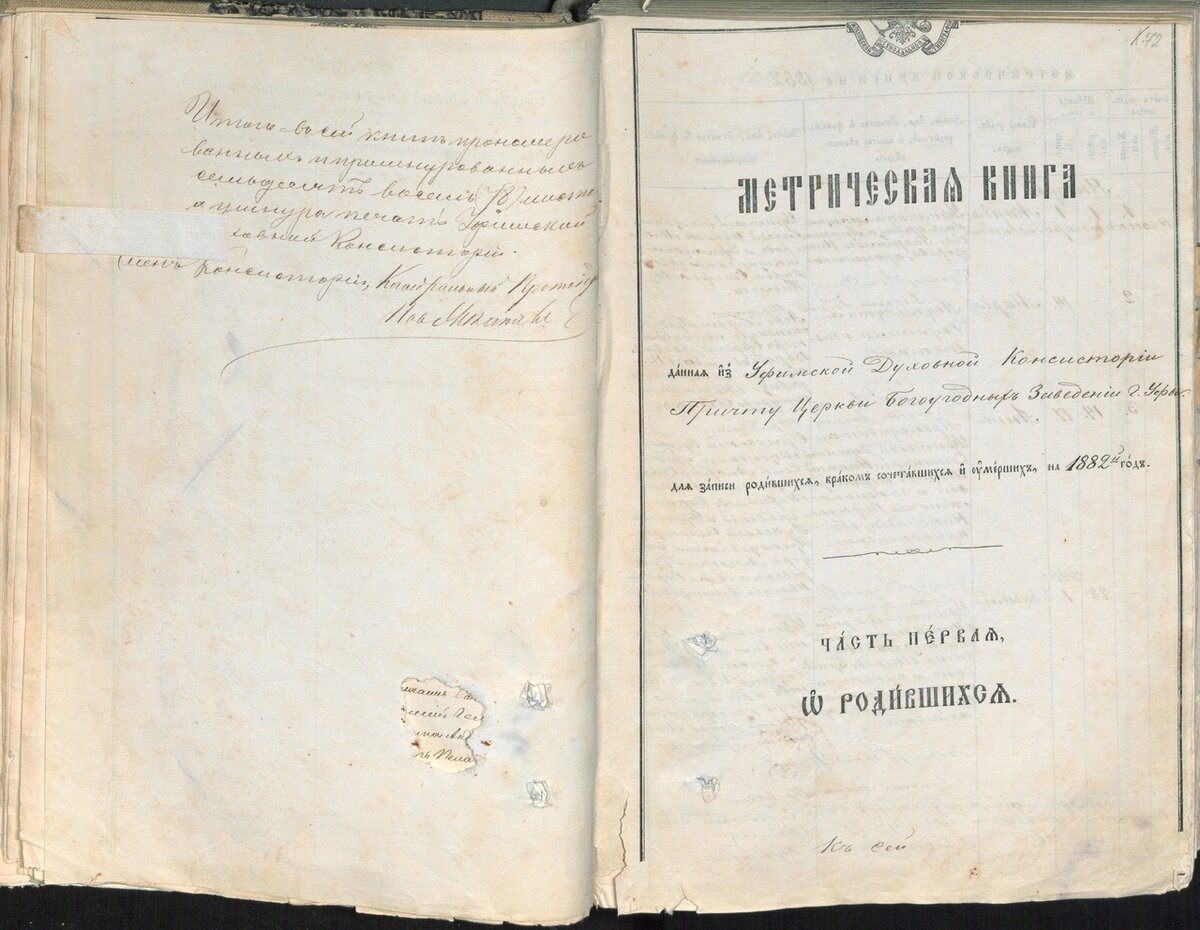 Итого въ сей книгѣ прономеро
ванныхъ и прошнурованныхъ
семьдесятъ восемь (78) листовъ
а у шнура печать Уфимской
ховной Консисторіи.
Членъ Консисторіи, Каѳдральный Протоіер
К 72
МЕТРИЧЕСКАЯ КНИГА
да́нная и҆з̾ Уфимской Духовной Консисторіи
Причту Церкви Богоугодныхъ Заведеній г. Уфы
для за́писи роди́вшихся, бра́комъ сочета́вшихся и҆ ᲂу҆ме́ршихъ, на 1882й го́дъ.
ЧА́СТЬ ПЕ́РВАЯ,
Ѽ РОДИ́ВШИХСЯ.
Къ сей